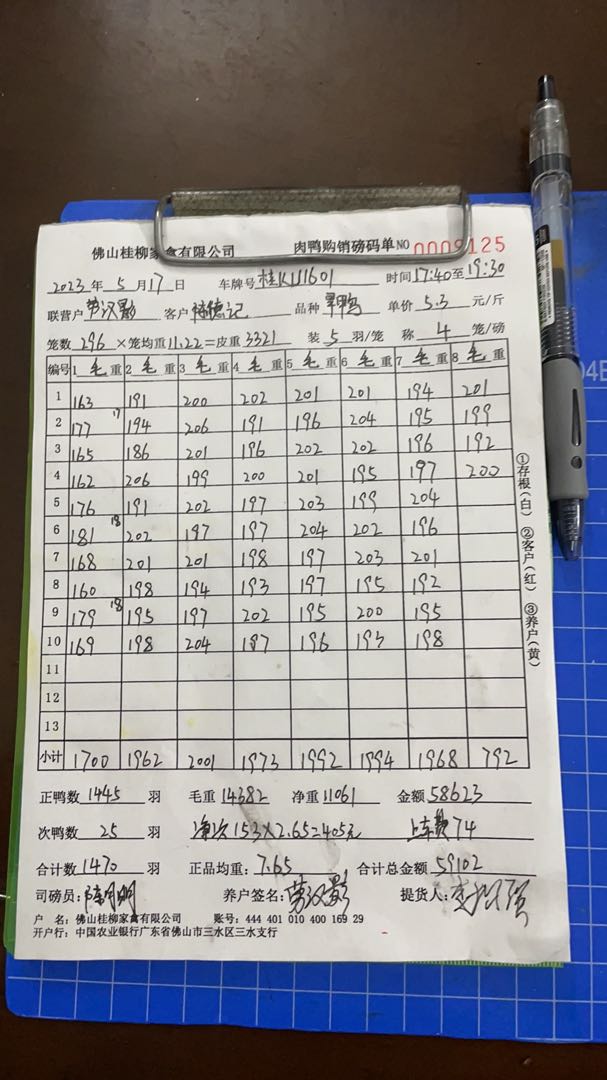 佛山桂柳家禽有限公司 肉鸭购销磅码单 NO 0009125
2023 年 5 月 17 日 车牌号 桂KU1601 时间 17:40 至 19:30
联营户 劳汉影 客户 陈德记 品种 单价 5.3 元/斤
笼数 296 ×笼均重 11.22 =皮重 3321 装 5 羽/笼 称 4 笼/磅
编号 1 毛 重 2 毛 重 3 毛 重 4 毛 重 5 毛 重 6 毛 重 7 毛 重 8 毛 重
1 163 191 200 202 201 201 194 201
2 177 17 194 206 191 196 204 195 199
3 165 186 201 196 202 202 196 192
4 162 206 199 200 201 195 197 200
5 176 191 202 197 203 199 204
6 181 18 202 197 197 204 202 196
7 168 201 201 198 197 203 201
8 160 198 194 193 197 195 192
9 179 18 195 197 202 195 200 195
10 169 198 204 187 196 193 198
11
12
13
小计 1700 1962 2001 1973 1992 1994 1968 792
①存根(白) ②客户(红) ③养户(黄)
正鸭数 1445 羽 毛重 14382 净重 11061 金额 58623
次鸭数 25 羽 153×2.65=405元 74
合计数 1470 羽 正品均重: 7.65 合计总金额 59102
司磅员: 陈明明 养户签名: 劳汉影 提货人:
户 名: 佛山桂柳家禽有限公司 账号: 444 401 010 400 169 29
开户行: 中国农业银行广东省佛山市三水区三水支行